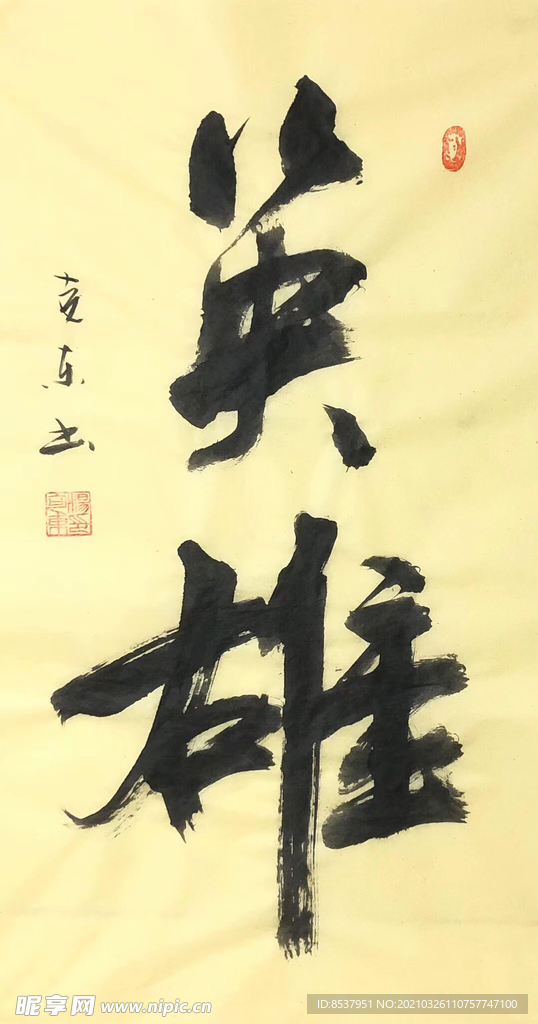 英雄
克东书
昵享网 www.nipic.cn
ID:8537951 NO:20210326110757747100